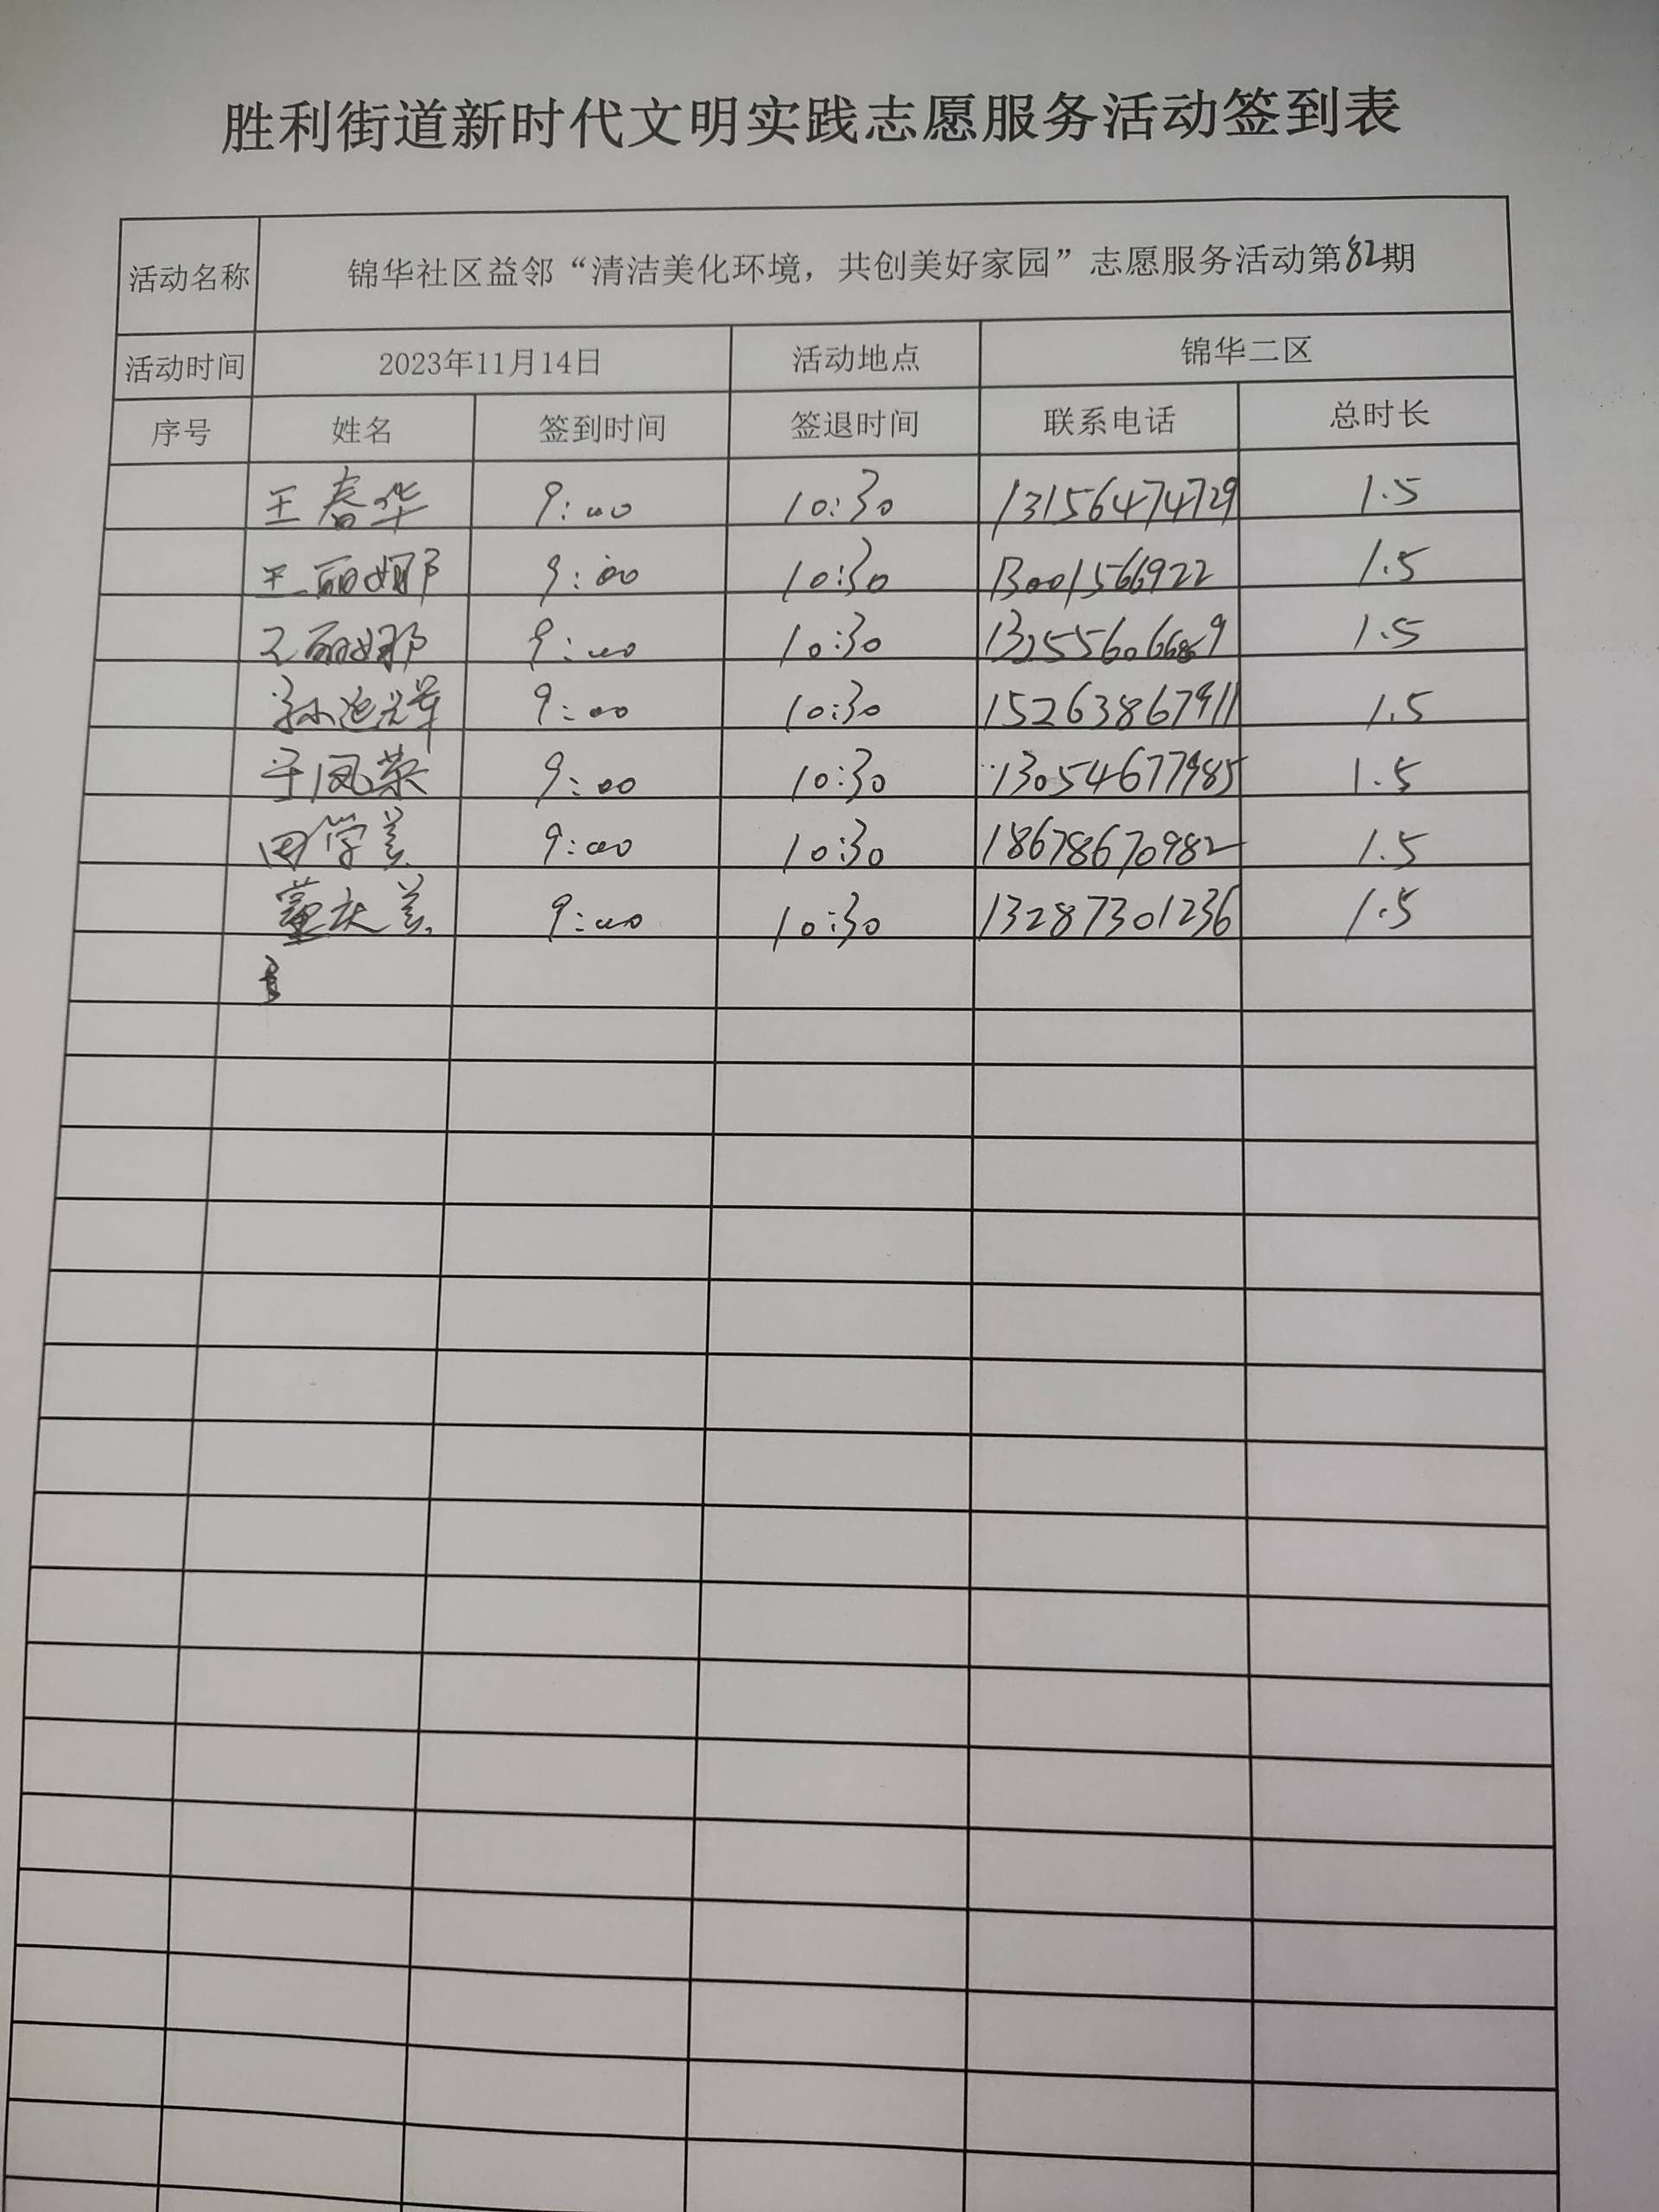 胜利街道新时代文明实践志愿服务活动签到表
活动名称 锦华社区益邻“清洁美化环境，共创美好家园”志愿服务活动第82期
活动时间 2023年11月14日 活动地点 锦华二区
序号 姓名 签到时间 签退时间 联系电话 总时长
王春华 9:00 10:30 13156474729 1.5
王丽娜 9:00 10:30 13001566922 1.5
王丽娜 9:00 10:30 1.5
9:00 10:30 15263867911 1.5
于凤荣 9:00 10:30 13054677985 1.5
田学美 9:00 10:30 18678670982 1.5
董庆美 9:00 10:30 13287301236 1.5